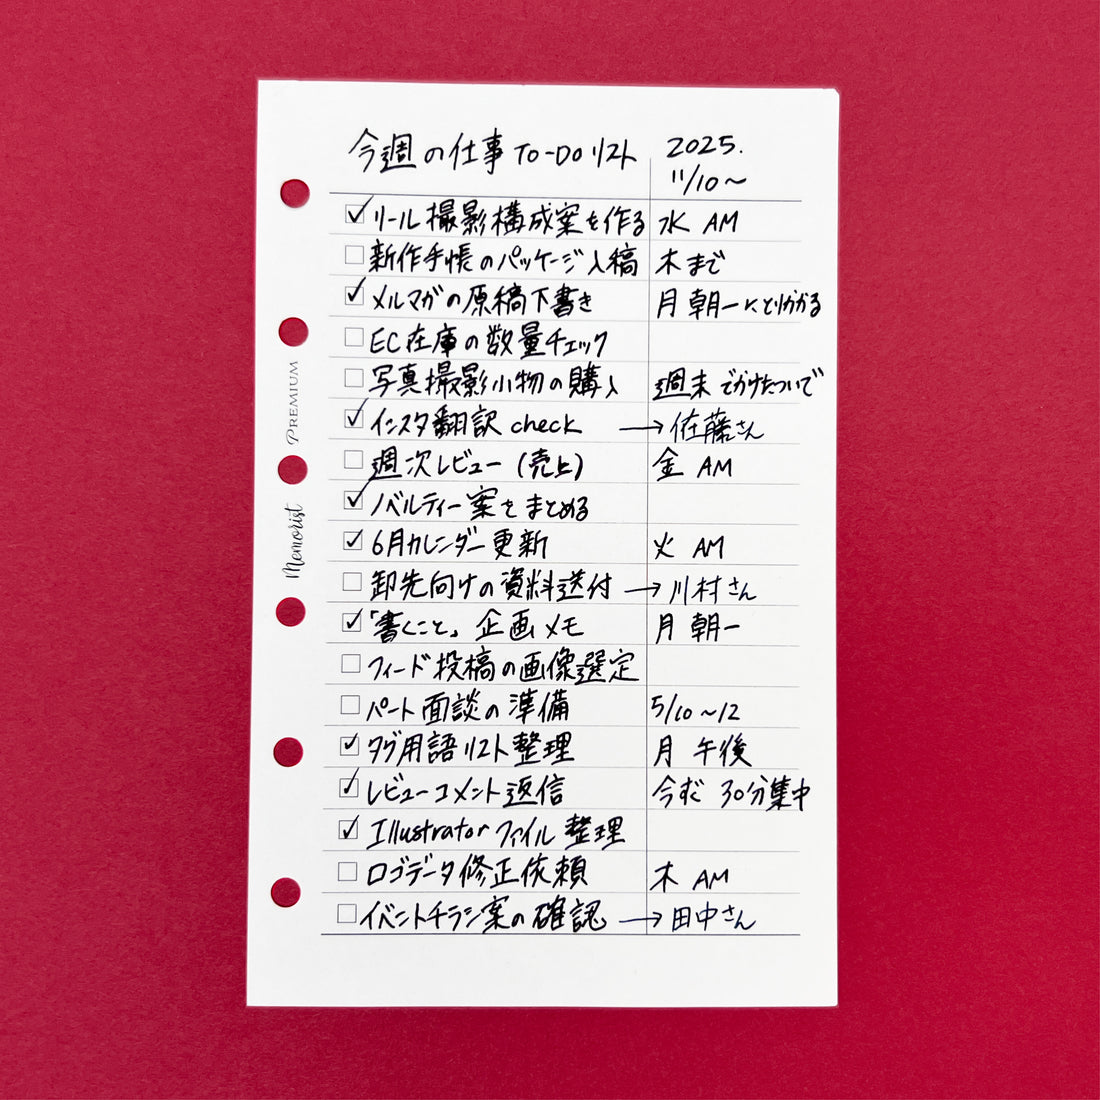 今週の仕事 TO-DO リスト 2025.
11/10〜
✓ リール撮影構成案を作る 水 AM
□ 新作手帳のパッケージ入稿 木まで
✓ メルマガの原稿下書き 月 朝一にとりかかる
□ EC在庫の数量チェック
□ 写真撮影小物の購入 週末 でかけたついで
✓ インスタ翻訳 check → 佐藤さん
□ 週次レビュー (売上) 金 AM
✓ ノベルティー案をまとめる
✓ 6月カレンダー更新 火 AM
□ 卸先向けの資料送付 → 川村さん
✓ 「書くこと」企画メモ 月 朝一
□ フィード投稿の画像選定
□ パート面談の準備 5/10〜12
✓ タグ用語リスト整理 月 午後
✓ レビューコメント返信 今すぐ 30分集中
✓ Illustrator ファイル 整理
□ ロゴデータ修正依頼 木 AM
□ イベントチラシ案の確認 → 田中さん
Memorist PREMIUM